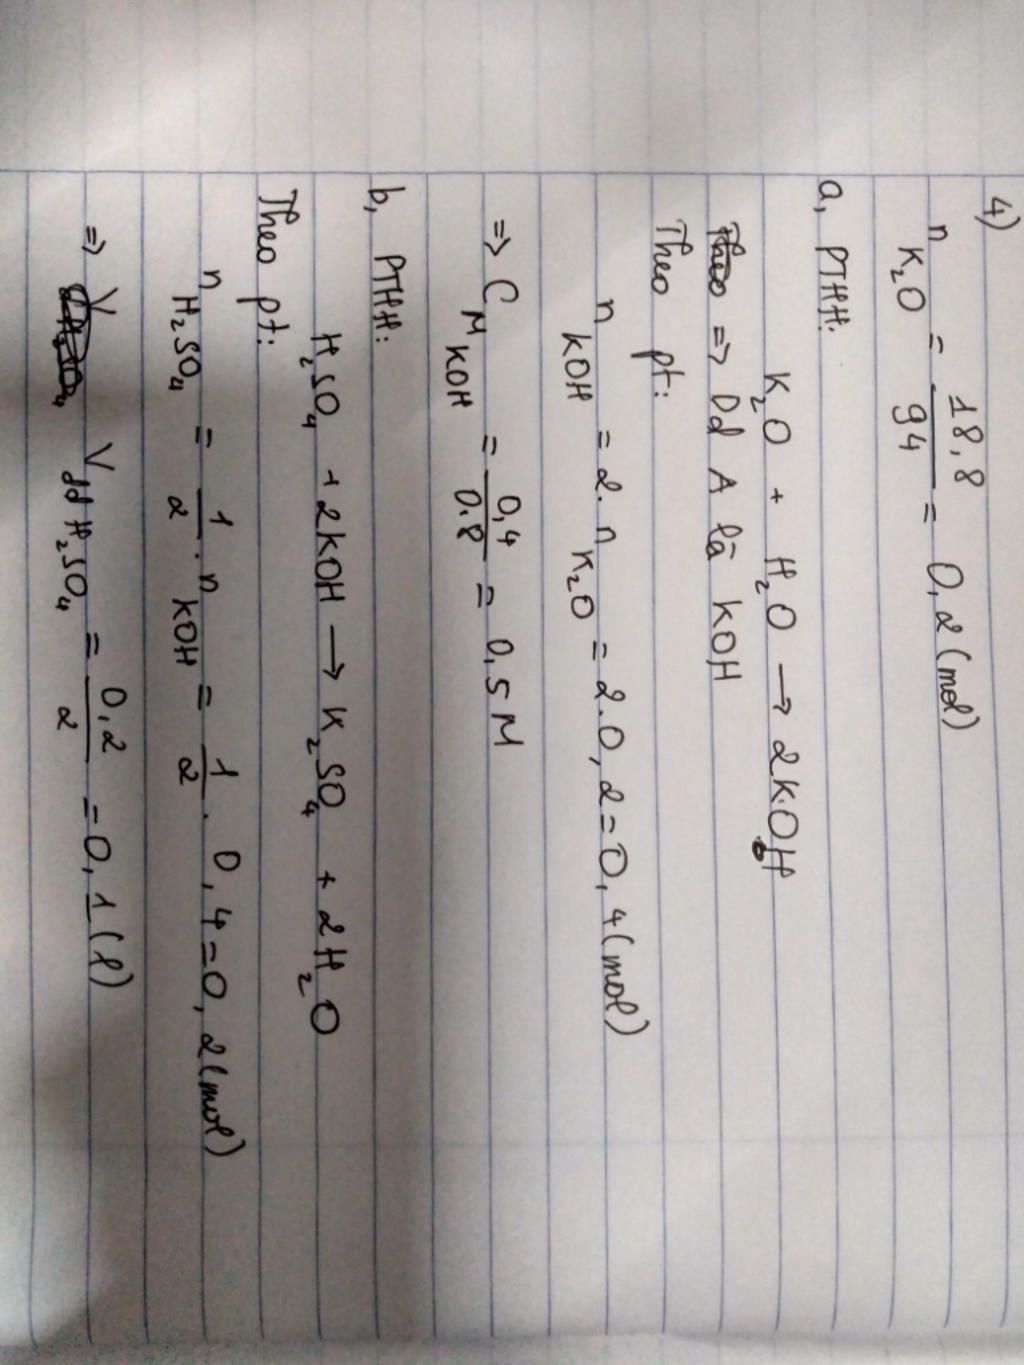 4)
n K₂O = 18,8/94 = 0,2 (mol)
a, PTHH:
K₂O + H₂O → 2KOH
Theo => Dd A là KOH
Theo pt:
n KOH = 2. n K₂O = 2.0,2=0,4(mol)
=> C M KOH = 0,4/0.8 = 0,5 M
b, PTHH:
H₂SO₄ + 2KOH → K₂SO₄ + 2H₂O
Theo pt:
n H₂SO₄ = 1/2 . n KOH = 1/2 . 0,4=0,2(mol)
=> V dd H₂SO₄ = 0,2/2 =0,1(l)